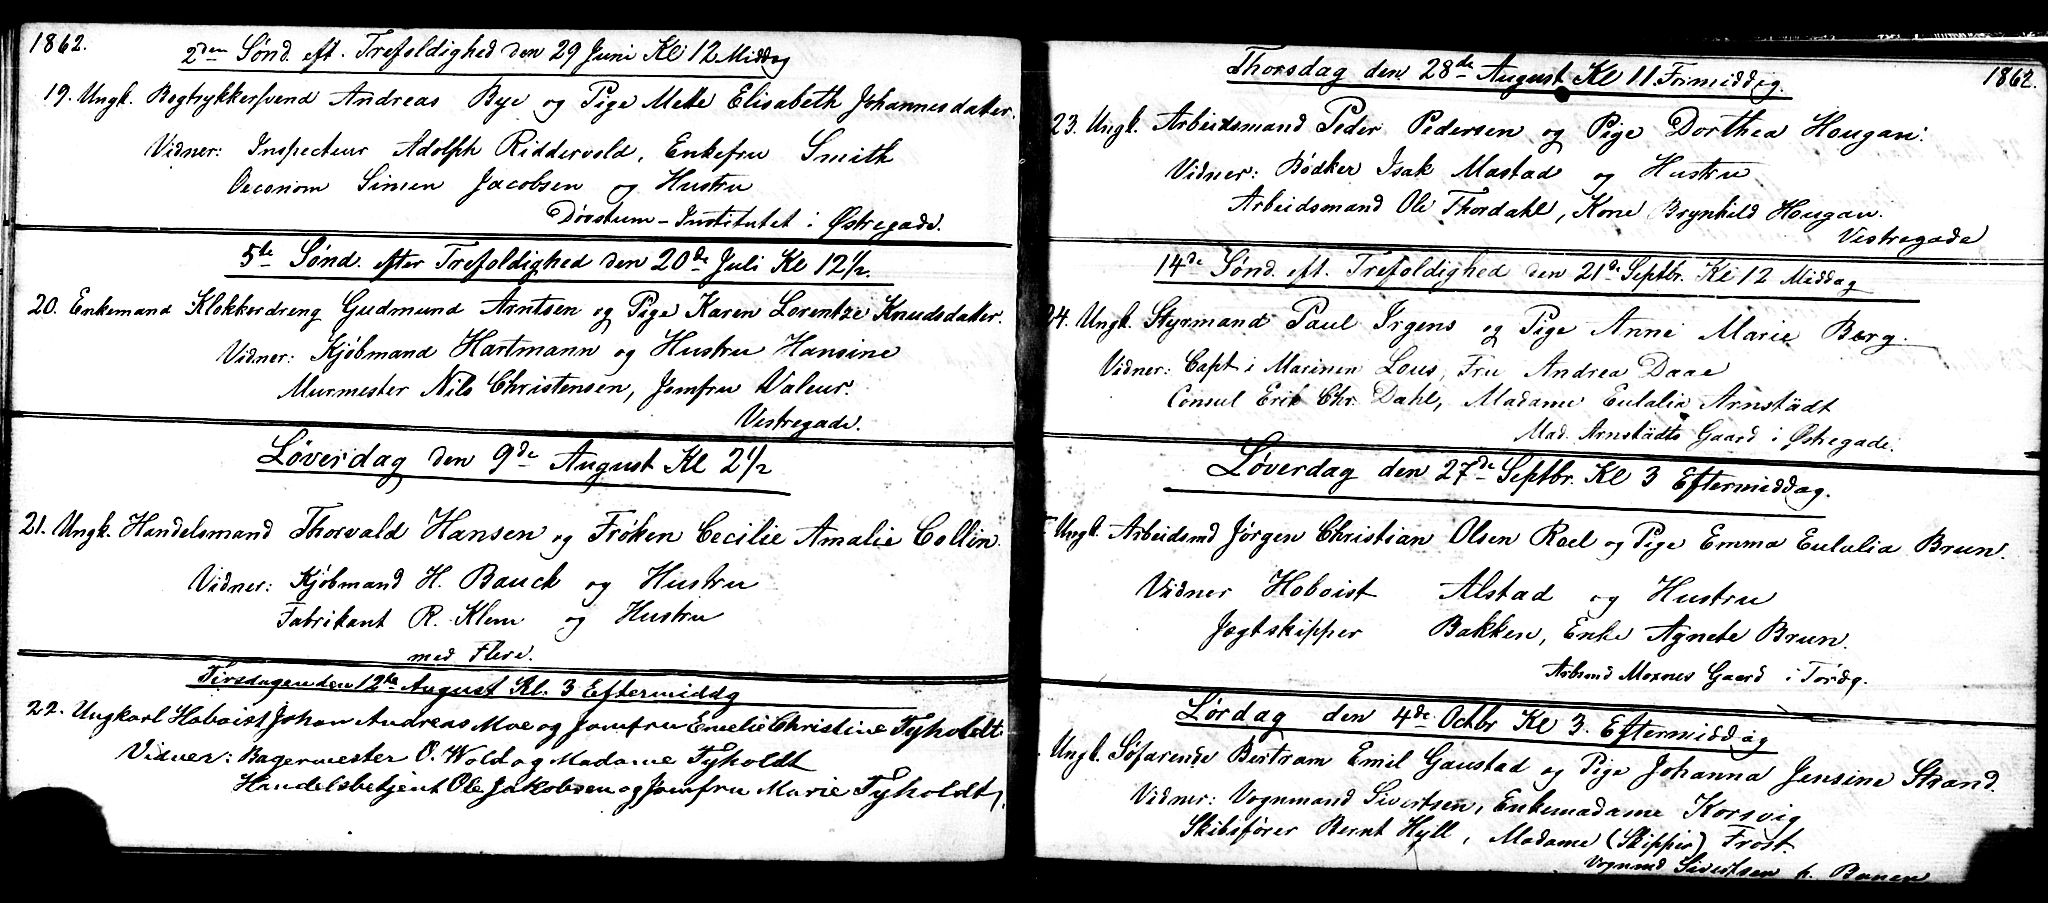 1862.
2den Sønd. eft. Trefoldighed den 29 Juni Kl 12 Middag
19. Ungk. Bogtrykkersvend Andreas Bye og Pige Mette Elisabeth Johannesdatter.
Vidner: Inspecteur Adolph Riddervold, Enkefru Smith
Oeconom Simen Jacobsen og Hustru
Døvstum-Institutet i Østregade.
5te Sønd. efter Trefoldighed den 20de Juli Kl 12½.
20. Enkemand Klokkerdreng Gudmund Arntsen og Pige Karen Lorentze Knudsdatter.
Vidner: Kjøbmand Hartmann og Hustru Hansine
Murmester Nils Christensen, Jomfru Valeur.
Vestregade.
Løverdag den 9de August Kl 2½
21. Ungk. Handelsmand Thorvald Hansen og Frøken Cecilie Amalie Collin.
Vidner: Kjøbmand H. Bauck og Hustru
Fabrikant R. Klem og Hustru
med Flere.
Tirsdagen den 12te August Kl. 3 Eftermiddg
22. Ungkarl Hoboist Johan Andreas Moe og Jomfru Emelie Christine Tyholdt.
Vidner: Bagermester O. Wold og Madame Tyholdt
Handelsbetjent Ole Jakobsen og Jomfru Marie Tyholdt,
1862.
Thorsdag den 28de August Kl 11 Formiddag.
23. Ungk. Arbeidsmand Peder Pedersen og Pige Dorthea Hougan.
Vidner: Bødker Isak Mastad og Hustru
Arbeidsmand Ole Thordahl, Kone Brynhild Hougan.
Vestregade
14de Sønd. eft. Trefoldighed den 21de Septbr. Kl 12 Middag
24. Ungk. Styrmand Paul Irgens og Pige Anne Marie Berg.
Vidner: Capt i Marinen Lous, Fru Andrea Daae
Consul Erik Chr. Dahl, Madame Eulalia Arnstädt
Mad. Arnstädts Gaard i Østregade.
Løverdag den 27de Septbr. Kl 3 Eftermiddag.
Ungk. Arbeidsmd Jørgen Christian Olsen Roel og Pige Emma Eulalia Brun.
Vidner Hoboist Alstad og Hustru
Jægtskipper Bakken, Enke Agnete Brun.
Arbmnd Moxnes Gaard i
Lørdag den 4de Octbr Kl 3. Eftermiddag
Ungk. Søfarende Bertram Emil Gaustad og Pige Johanna Jensine Strand.
Vidner: Vognmand Sivertsen, Enkemadame Korsvig
Skibsfører Bernt Hyll, Madame (Skipper) Frost.
Vognmd Sivertsen p. Banen